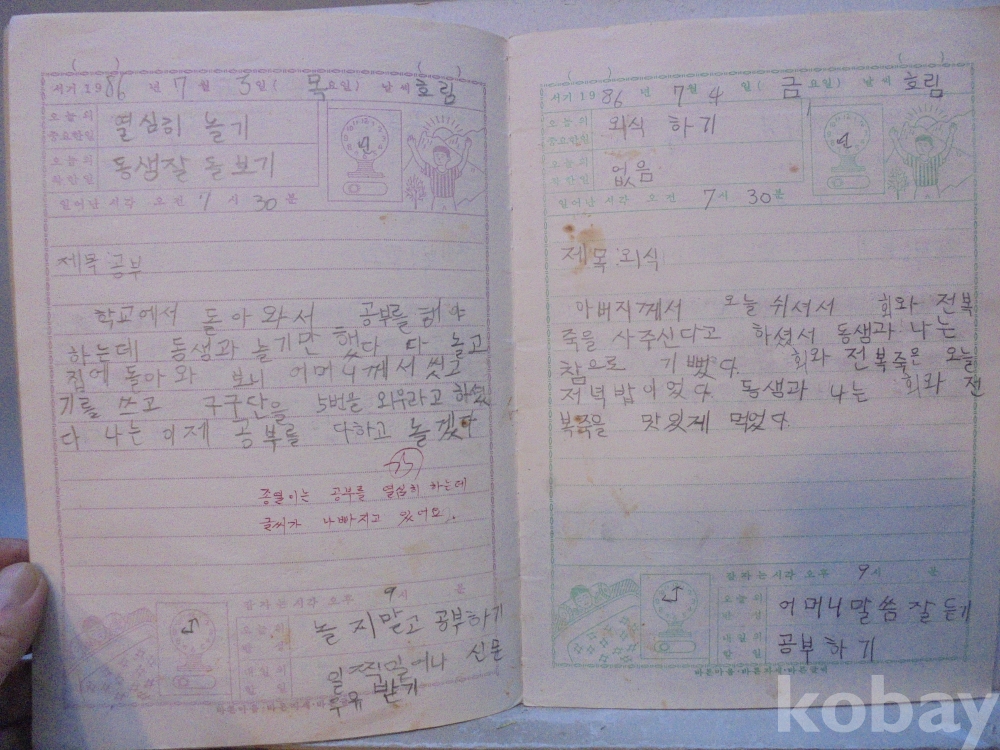 서기 1986 년 7 월 3 일 ( 목요일 ) 날씨 흐림
오늘의 중요한일 열심히 놀기
오늘의 착한일 동생잘 돌보기
일어난 시각 오전 7 시 30 분
제목 공부
학교에서 돌아와서 공부를 해야
하는데 동생과 놀기만 했다 다 놀고
집에 돌아와 보니 어머니께서 씻고
기를 쓰고 구구단을 5번을 외우라고 하셨
다 나는 이제 공부를 다하고 놀겠다
종열이는 공부를 열심히 하는데
글씨가 나빠지고 있어요.
잠자는시각 오후 9시 분
오늘의 반성 놀지말고 공부하기
내일의 할일 일찍일어나 신문
우유 받기
바른마음·바른자세·바른글씨
서기 1986 년 7 월 4 일 ( 금요일 ) 날씨 흐림
오늘의 중요한일 외식 하기
오늘의 착한일 없음
일어난 시각 오전 7시 30분
제목:외식
아버지께서 오늘 쉬셔서 회와 전복
죽을 사주신다고 하셨서 동생과 나는
참으로 기뻤다. 회와 전복죽은 오늘
저녁밥이었다. 동생과 나는 회와 전
복죽을 맛있게 먹었다.
잠자는시각 오후 9시 분
오늘의 반성 어머니말씀잘듣기
내일의 할일 공부하기
바른마음·바른자세·바른글씨
kobay